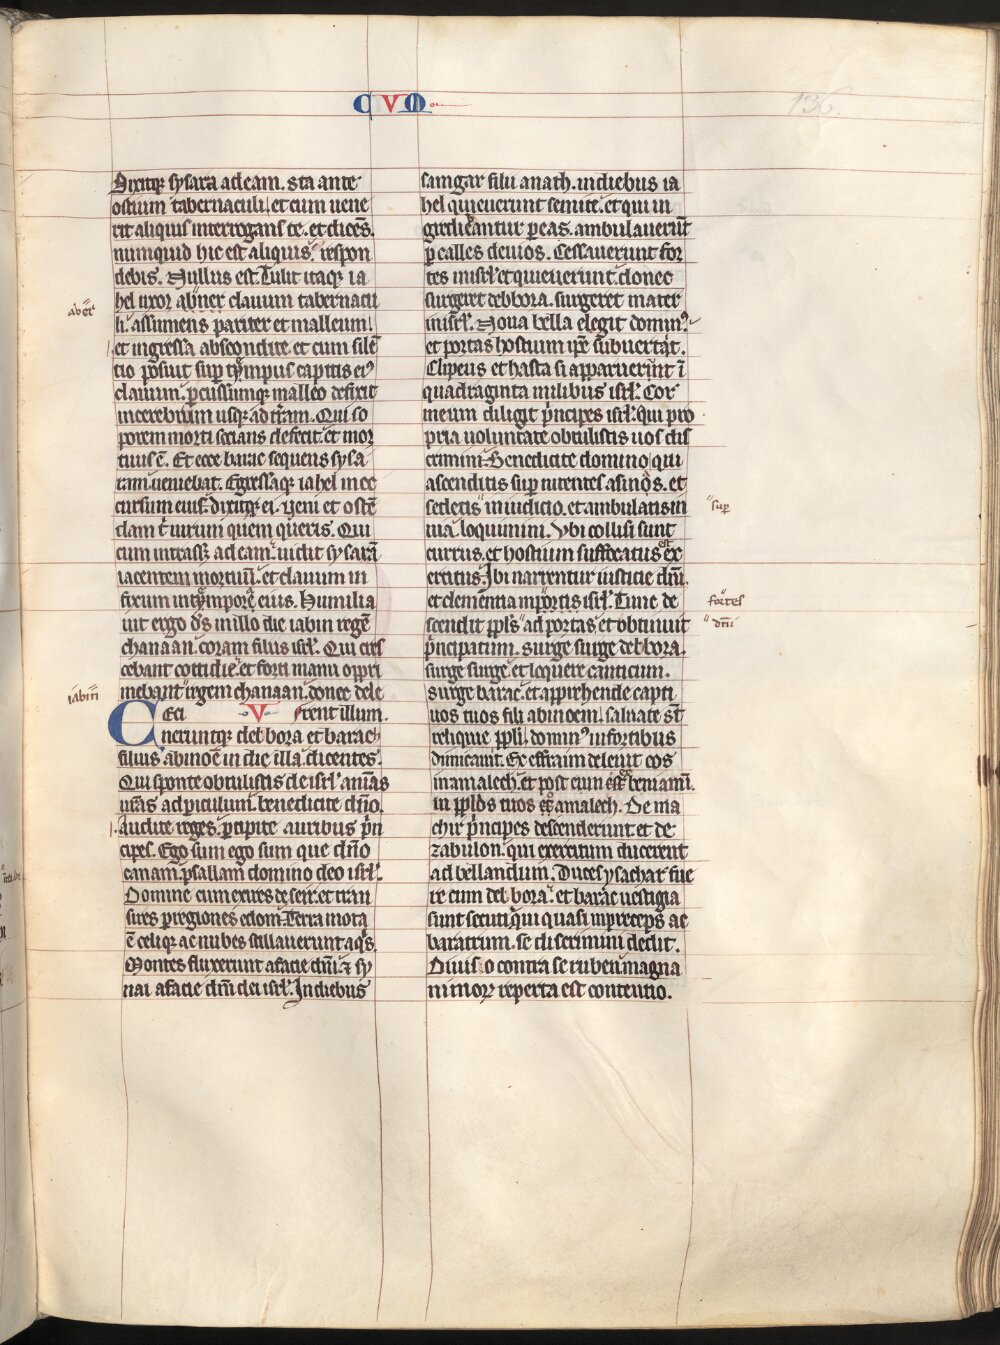 CVM
136.
Dixitq; sysara ad eam. sta ante
ostium tabernaculi. et cum uene
rit aliquis interrogans te. et dicēs.
numquid hic est aliquis. respon
debis. Nullus est. Tulit itaq; ia
hel uxor abner clauum tabernacu
li. assumens pariter et malleum.
et ingressa abscondite et cum silē
tio posuit sup tympus capitis ei9
clauum. pcussumq; malleo defixit
in cerebrum usq; ad t̄ram. Qui so
porem morti socians defecit. et mor
tuus ē. Et ecce barac sequens sysa
ram ueniebat. Egressaq; iahel in oc
cursum eius dixitq; ei. ueni et ostē
dam t̄ uirum quem queris. Qui
cum intrass; ad eam. uidit sysarā
iacentem mortuū. et clauum in
fixum in tympore eius. Humilia
uit ergo d̄s in illo die iabin regē
chanaan. coram filiis isrl̄. Qui cres
cebant cottidie. et forti manu oppri
mebant regem chanaan. donec dele
rent illum.
Ceci V
neruntq; delbora et barach
filius abinoē in die illa. dicentes.
Qui sponte obtulistis de isrl̄ animas
ur̄as ad piculum. benedicite dn̄o.
Audite reges. pcipite auribus prin
cipes. Ego sum ego sum que dn̄o
canam. psallam domino deo isrl̄.
Domine cum exires de seir. et tran
sires p regiones edom. Terra mota
ē celiq; ac nubes stillauerunt aq's.
Montes fluxerunt a facie dn̄i. et sy
nai a facie dn̄i dei isrl̄. In diebus
samgar filii anath. in diebus ia
hel quieuerunt semite. et qui in
grediebantur p eas. ambulauerūt
p calles deuios. Cessauerunt for
tes in isrl̄ et quieuerunt. donec
surgeret debbora. surgeret mater
in isrl̄. Noua bella elegit domin9
et portas hostium ip̄e subuertat.
Clipeus et hasta si apparuerint ī
quadraginta milibus isrl̄. Cor
meum diligit principes isrl̄. Qui pro
pria uoluntate obtulistis uos dis
crimini. Benedicite domino qui
ascenditis sup nitentes asinos. et
sedetis in iudicio. et ambulatis in
uia. loquimini. Vbi collisi sunt
currus. et hostium suffocatus est ex
ercitus. Ibi narrentur iusticie dn̄i.
et clementia in portis isrl̄. Tunc de
scendit ppl̄s ad portas et obtinuit
principatum. Surge surge debbora.
surge surge. et loquere canticum.
Surge barac. et apprehende capti
uos tuos fili abinoem. saluate st̄
relique ppl̄i. domin9 in fortibus
dimicauit. Ex effraim deleuit eos
in amalech. et post eum ex beniamī.
in ppl̄os tuos o amalech. De ma
chir principes descenderunt. et de
zabulon. qui exercitum ducerent
ad bellandum. Duces ysachar fue
re cum delbora. et barac uestigia
sunt secuti. qui quasi in preceps ac
baratrum. se discrimini dedit.
Diuiso contra se ruben. magna
nimorum reperta est contentio.
aber
iabin
sup
fortes
dn̄i